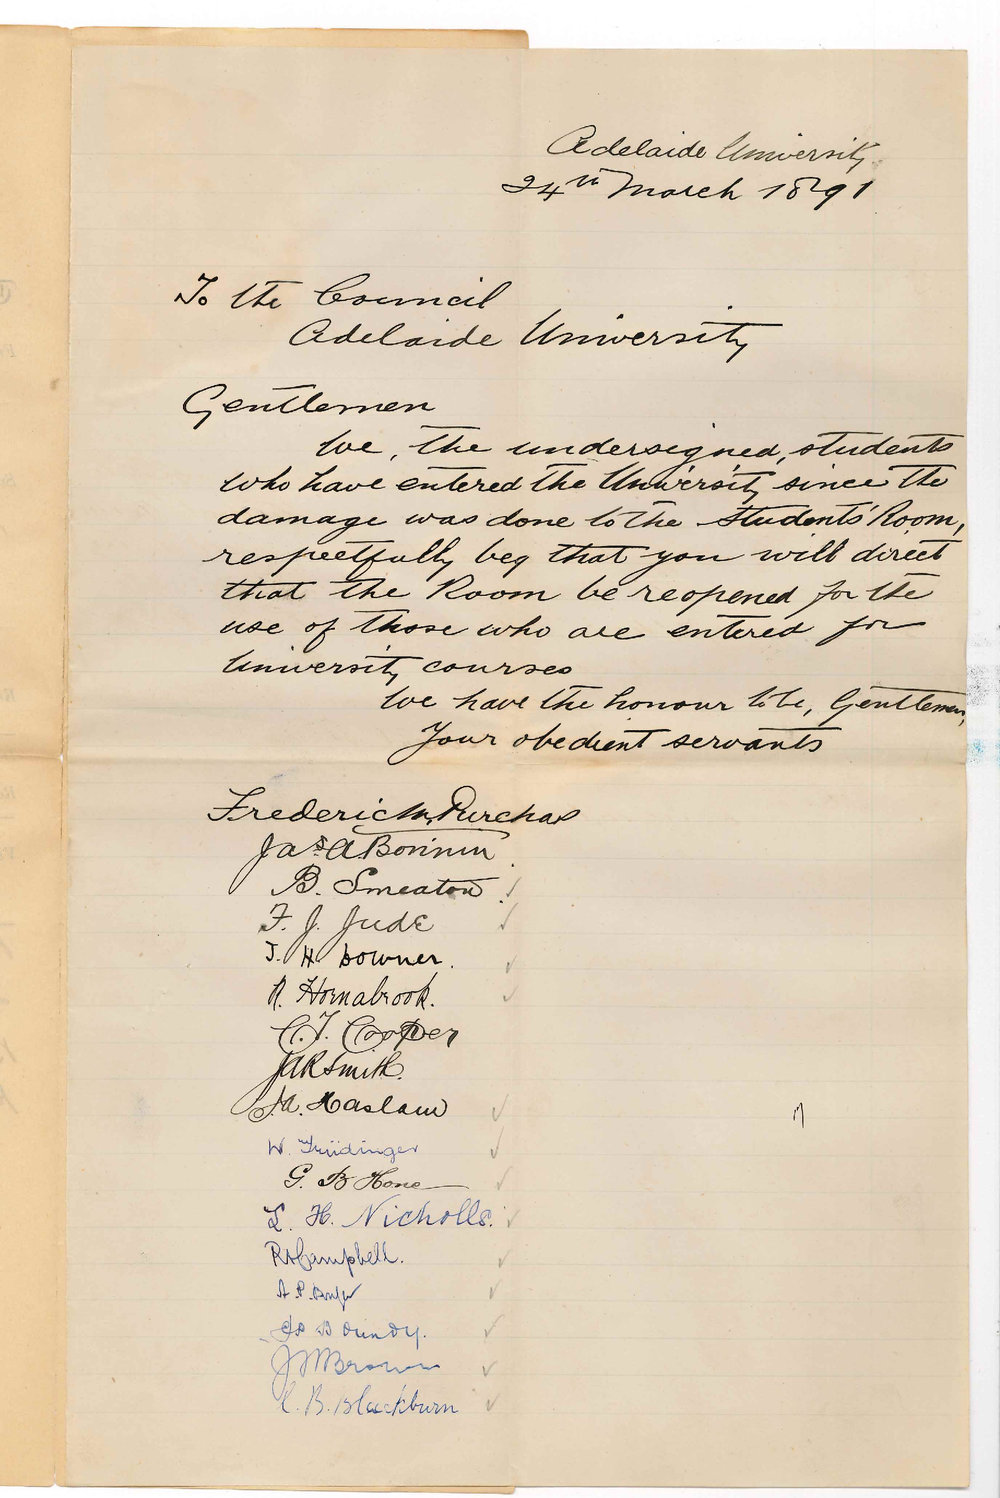 Adelaide University
24th March 1891
To the Council
Adelaide University
Gentlemen
We, the undersigned, students
who have entered the University since the
damage was done to the Students' Room,
respectfully beg that you will direct
that the Room be reopened for the
use of those who are entered for
University courses
We have the honour to be, Gentlemen,
Your obedient servants
Frederic Purchas
Jas A Bonnin
B. Smeaton
F. J. Jude
J. H Downer.
R. Hornabrook.
C. T. Cooper
JAR Smith.
J. A. Haslam
W. Trüdinger
G. B Hone
L. H. Nicholls.
Campbell.
A. P.
Bundy.
J M Brown
C. B. Blackburn